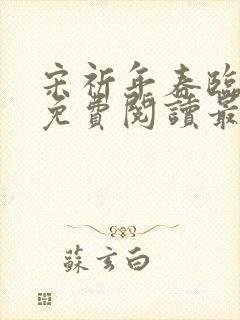 宋祈年春臨
免費閱讀最
蘇玄白